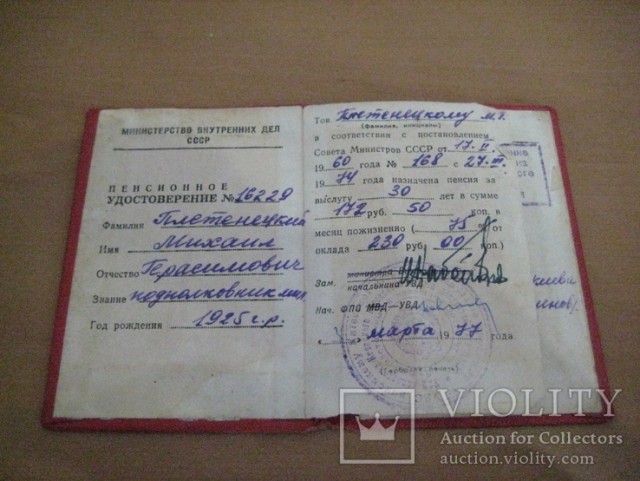 МИНИСТЕРСТВО ВНУТРЕННИХ ДЕЛ
СССР
ПЕНСИОННОЕ
УДОСТОВЕРЕНИЕ № 16229
Фамилия Плетенецкий
Имя Михаил
Отчество Герасимович
Звание подполковник мил.
Год рождения 1925 г.р.
Тов. Плетенецкому М.Г.
(фамилия, инициалы)
в соответствии с постановлением
Совета Министров СССР от 17.II.
1960 года № 168 с 27.III.
1974 года назначена пенсия за
выслугу 30 лет в сумме
172 руб. 50 коп. в
месяц пожизненно ( 75 % от
оклада 230 руб. 00 коп.)
министра
Зам. начальника УВД
Нач. ФПО МВД — УВД
марта 1977 года
(Гербовая печать)
VIOLITY
Auction for Collectors
auction.violity.com